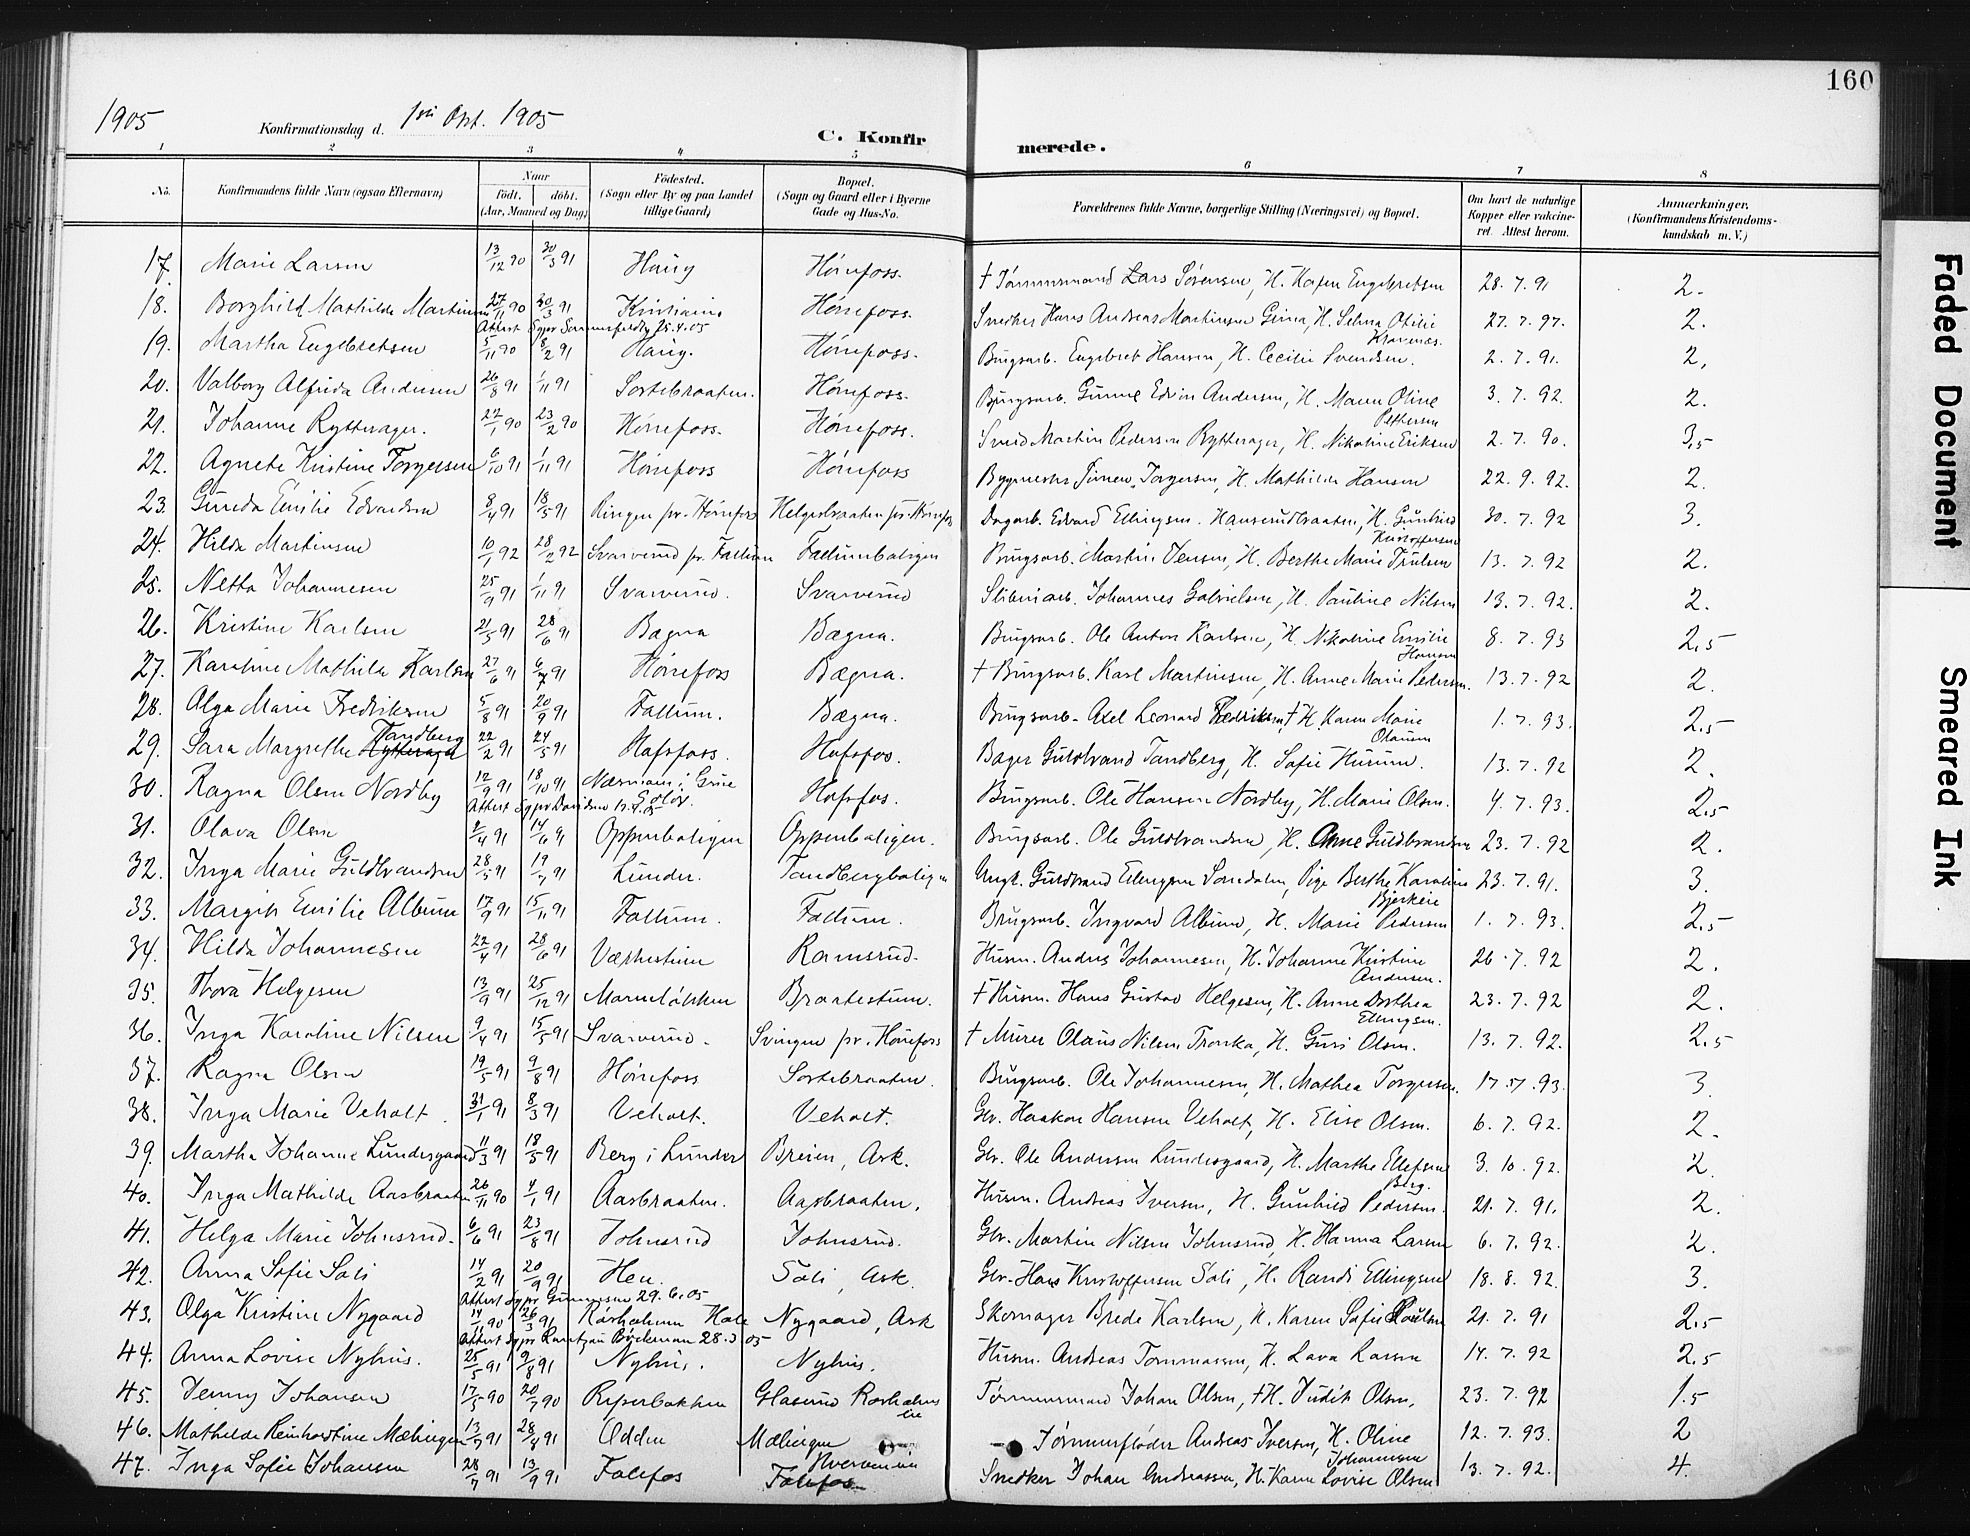 160
1905 Konfirmationsdag d. 1ste Okt. 1905 C. Konfirmerede.
1 2 3 4 5 6 7 8
No. Konfirmandens fulde Navn (ogsaa Efternavn) Naar født. døbt. (Aar, Maaned og Dag) Fødested. (Sogn eller By og paa Landet tillige Gaard) Bopæl. (Sogn og Gaard eller i Byerne Gade og Hus-No. Forældrenes fulde Navne, borgerlige Stilling (Næringsvei) og Bopæl. Om havt de naturlige Kopper eller vaccineret. Attest herom. Anmærkninger. (Konfirmandens Kristendomskundskab m. V.)
17. Marie Larsen 13/12 90 30/3 91 Haug Hønefoss. † Tømmermand Lars Sørensen, H. Karen Engebretsen 28.7.91 2.
18. Borghild Mathilde Martinsen 27/11 90 30/3 91 Kristiania Hønefoss. Snedker Hans Andreas Martinsen, H. Selma Otilie 27.7.97. 2.
Attest Sgpr Sommerfeldt 25.4.05
19. Martha Engebretsen 5/11 90 8/2 91 Haug. Hønefoss. Brugsarb. Engebret Hansen, H. Cecilie Svendsen. 2.7.91. 2.
20. Valborg Alfrida Andersen 26/8 91 1/11 91 Sortebraaten. Hønefoss. Brugsarb. Gunne Edvin Andersen, H. Maren Oline Pettersen 3.7.92. 2.
21. Johanne Rytterager. 22/1 90 23/2 90 Hønefoss. Hønefoss. Smed Martin Pedersen Rytterager, H. Nikoline Eriksen 2.7.90. 3,5
22. Agnete Kristine Torgersen 6/10 91 1/11 91 Hønefoss Hønefoss Bygmester Torgersen, H. Mathilde Hansen 22.9.92. 2.
23. Gunda Emilie Edvardsen 8/4 91 18/5 91 Ringen pr. Hønefoss Helgesbraaten pr. Hønefos Dagarb. Edvard Ellingsen. Hanserudbraaten, H. Gunhild Kristoffersen 30.7.92 3.
24. Hilda Martinsen 10/1 92 28/2 92 Svarverud pr. Follum Follumboligen Brugsarb. Martin Jensen, H. Berthe Marie Trulsen 13.7.92 2.
25. Netta Johannesen 25/9 91 1/11 91 Svarverud. Svarverud Sliberiarb. Johannes Gabrielsen, H. Pauline Nilsen 13.7.92. 2.
26. Kristine Karlsen 21/5 91 28/6 91 Bægna Bægna. Brugsarb. Ole Anton Karlsen, H. Nikoline Emilie Hansen 8.7.93 2,5
27. Karoline Mathilde Karlsen 27/6 91 6/7 91 Hønefoss Bægna. † Brugsarb. Karl Martinsen, H. Anne Marie Pedersen. 13.7.92 2.
28. Olga Marie Fredriksen 5/8 91 20/9 91 Follum. Bægna. Brugsarb. Axel Leonard Fredriksen, † H. Karen Marie Olausen 1.7.93. 2,5
29. Sara Margrethe Rytterager Tandberg 22/2 91 24/5 91 Hofsfoss. Hofsfos. Bager Guldbrand Tandberg, H. Sofie Hurum. 13.7.92 2.
30. Ragna Olsen Nordby 12/9 91 18/10 91 i Grue Solør. Hofsfos. Brugsarb. Ole Hansen Nordby, H. Marie Olsen. 4.7.93. 2,5
Attest Sgpr Davidsen
31. Olava Olsen 2/4 91 14/6 91 Oppenboligen Oppenboligen. Brugsarb. Ole Guldbrandsen, H. Anne Guldbrandsen 23.7.92 2.
32. Inga Marie Guldbrandsen 28/5 91 19/7 91 Lunder. Tandbergboligen Ungk. Guldbrand Ellingsen Sørdalen, Pige Berthe Karoline Bjerkeie 23.7.91. 3.
33. Margit Emilie Album 17/9 91 15/11 91 Follum. Follum. Brugsarb. Ingvard Album, H. Marie Pedersen 1.7.93. 2,5
34. Hilda Johannesen 22/4 91 28/6 91 Ramsrud. Husm. Andres Johannesen, H. Johanne Kristine Andersen. 26.7.92 2.
35. Thora Helgesen 13/9 91 25/12 91 Braatestuen. † Husm. Hans Gustav Helgesen, H. Anne Dorthea Ellingsen. 23.7.92 2.
36. Inga Karoline Nilsen 9/4 91 15/5 91 Svarverud. Svingen pr. Hønefoss † Murer Olaus Nilsen Tronka, H. Guri Olsen. 13.7.92. 2,5
37. Ragna Olsen 19/5 91 9/8 91 Hønefoss Sortebraaten. Brugsarb. Ole Johannesen, H. Mathea Torgersen. 17.7.93. 3.
38. Inga Marie Veholt. 31/1 91 8/3 91 Veholt. Veholt. Gbr. Haakon Hansen Veholt, H. Elise Olsen. 6.7.92. 2.
39. Martha Johanne Lundesgaard 11/3 91 18/5 91 Berg i Lunder Breien, Ask. Gbr. Ole Andersen Lundesgaard, H. Marthe Ellefsen Berg. 3.10.92. 2.
40. Inga Mathilde Aasbraaten 26/11 90 4/1 91 Aasbraaten. Aasbraaten. Husm. Andreas Iversen, H. Gunhild Pedersen. 21.7.91. 2.
41. Helga Marie Johnsrud. 6/6 91 23/8 91 Johnsrud Johnsrud. Gbr. Martin Nilsen Johnsrud, H. Hanna Larsen 6.7.92. 2.
42. Anna Sofie Soli 14/2 91 20/9 91 Hen. Soli, Ask. Gbr. Hans Kristoffersen Soli, H. Randi Ellingsen 18.8.92. 3.
Attest Sgpr Gunnersen 29.6.05
43. Olga Kristine Nygaard 14/11 90 26/3 91 Røsholmen Hole Nygaard, Ask Skomager Brede Karlsen, H. Karen Sofie Poulsen 21.7.91 2,5
Attest Sgpr Rantzau Bøckman 28.3.05
44. Anna Lovise Nyhus. 25/5 91 9/8 91 Nyhus. Nyhus. Husm. Andreas Tommassen, H. Lava Larsen 14.7.92 2,5
45. Jenny Johansen 17/5 90 20/7 90 Ryserbakken Glaserud Tømmermand Johan Olsen, † H. Judith Olsen. 23.7.92 1,5
46. Mathilde Reinhardtine Mælingen 13/7 91 28/8 91 Odden Mælingen Tømmerfløder Andreas Iversen, H. Oline Johannesen 12.7.93. 2
47. Inga Sofie Johansen 28/7 91 13/9 91 Folefos Folefos Snedker Johan Andreassen, H. Karen Lovise Olsen 13.7.92. 4.
Faded Document
Smeared Ink